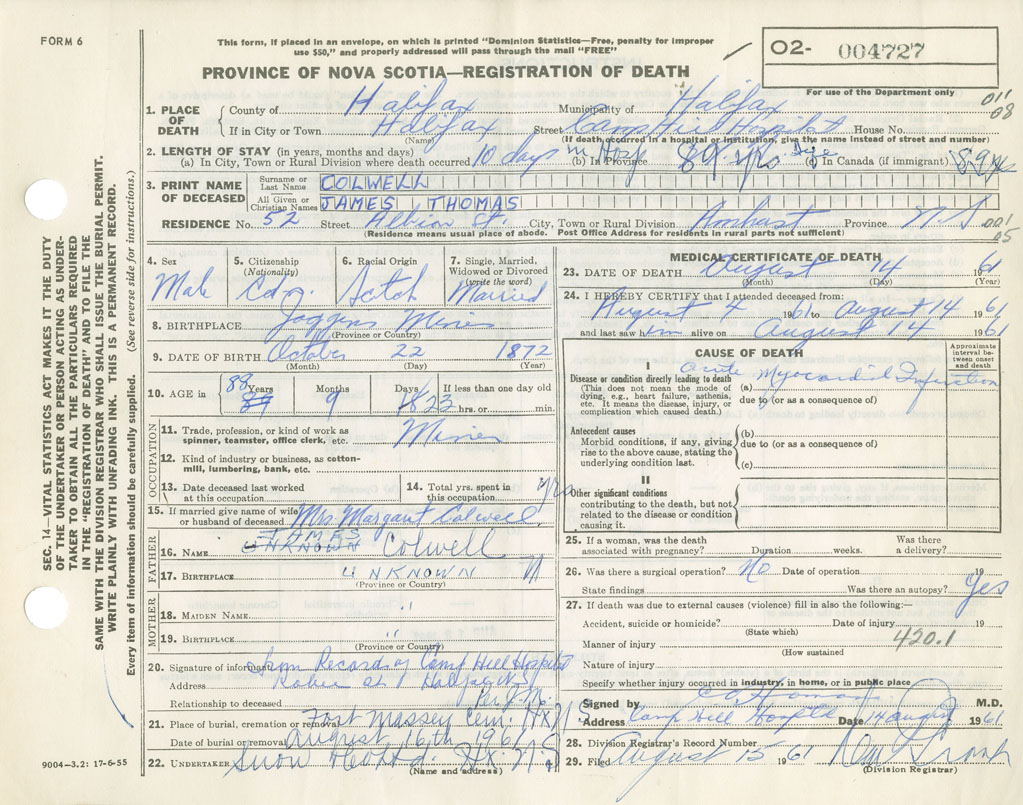 FORM 6
This form, if placed in an envelope, on which is printed "Dominion Statistics—Free, penalty for improper
use $50," and properly addressed will pass through the mail "FREE"
PROVINCE OF NOVA SCOTIA—REGISTRATION OF DEATH
O2- 004727
For use of the Department only
011
08
1. PLACE OF DEATH County of Halifax Municipality of Halifax
If in City or Town Halifax Street Camp Hill Hospital House No.
(Name) (If death occurred in a hospital or institution, give the name instead of street and number)
2. LENGTH OF STAY (in years, months and days)
(a) In City, Town or Rural Division where death occurred 10 days in Hosp (b) In Province 89 yrs (c) In Canada (if immigrant) 89 yrs
3. PRINT NAME OF DECEASED Surname or Last Name COLWELL
All Given or Christian Names JAMES THOMAS
RESIDENCE No. 52 Street Albion St. City, Town or Rural Division Amherst Province N S
001
05
(Residence means usual place of abode. Post Office Address for residents in rural parts not sufficient)
SEC. 14—VITAL STATISTICS ACT MAKES IT THE DUTY
OF THE UNDERTAKER OR PERSON ACTING AS UNDER-
TAKER TO OBTAIN ALL THE PARTICULARS REQUIRED
IN THE "REGISTRATION OF DEATH" AND TO FILE THE
SAME WITH THE DIVISION REGISTRAR WHO SHALL ISSUE THE BURIAL PERMIT.
WRITE PLAINLY WITH UNFADING INK. THIS IS A PERMANENT RECORD.
Every item of information should be carefully supplied. (See reverse side for instructions.)
4. Sex Male
5. Citizenship (Nationality) Cdn.
6. Racial Origin Scotch
7. Single, Married, Widowed or Divorced (write the word) Married
8. BIRTHPLACE Joggins Mines
(Province or Country)
9. DATE OF BIRTH October 22 1872
(Month) (Day) (Year)
10. AGE in 88 Years 89 Months 9 Days 23 If less than one day old
hrs. or min.
OCCUPATION
11. Trade, profession, or kind of work as
spinner, teamster, office clerk, etc. Miner
12. Kind of industry or business, as cotton-
mill, lumbering, bank, etc.
13. Date deceased last worked
at this occupation
14. Total yrs. spent in
this occupation yrs
15. If married give name of wife
or husband of deceased Mrs. Margaret Colwell
FATHER
JAMES
16. NAME UNKNOWN Colwell
17. BIRTHPLACE UNKNOWN
(Province or Country)
MOTHER
18. MAIDEN NAME "
19. BIRTHPLACE "
(Province or Country)
20. Signature of informant from Records of Camp Hill Hospital
Address Robie St Halifax N S
Relationship to deceased
21. Place of burial, cremation or removal Fort Massey Cem. Hx N S
Date of burial or removal August 16th 1961
22. UNDERTAKER Snow Co Ltd. Hx N S
(Name and address)
9004—3.2: 17-6-55
MEDICAL CERTIFICATE OF DEATH
23. DATE OF DEATH August 14 1961
(Month) (Day) (Year)
24. I HEREBY CERTIFY that I attended deceased from:
August 4 1961 to August 14 1961
and last saw him alive on August 14 1961
CAUSE OF DEATH
Approximate
interval be-
tween onset
and death
I
Disease or condition directly leading to death
(This does not mean the mode of
dying, e.g., heart failure, asthenia,
etc. It means the disease, injury, or
complication which caused death.)
(a) Acute Myocardial Infarction
due to (or as a consequence of)
Antecedent causes
Morbid conditions, if any, giving
rise to the above cause, stating the
underlying condition last.
(b)
due to (or as a consequence of)
(c)
II
Other significant conditions
contributing to the death, but not
related to the disease or condition
causing it.
25. If a woman, was the death Was there
associated with pregnancy? Duration weeks. a delivery?
26. Was there a surgical operation? No Date of operation 19
State findings Was there an autopsy? Yes
27. If death was due to external causes (violence) fill in also the following:—
Accident, suicide or homicide? Date of injury 19
(State which)
Manner of injury 420.1
(How sustained
Nature of injury
Specify whether injury occurred in industry, in home, or in public place
Signed by M.D.
Address Camp Hill Hospital Date 14 August 1961
28. Division Registrar's Record Number
29. Filed August 15 1961
(Division Registrar)